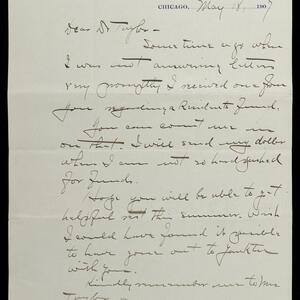 CHICAGO, May 18, 1907
Dear Dr Taylor —
Sometime ago when
I was not answering letters
very promptly I received one from
you regarding a Residents fund.
You can count me in
on that. I will send my dollar
when I am not so hard pushed
for funds.
Hope you will be able to get
helpful rest this summer. Wish
I would have found it possible
to have gone out to
with you.
Kindly remember me to Mrs
Taylor